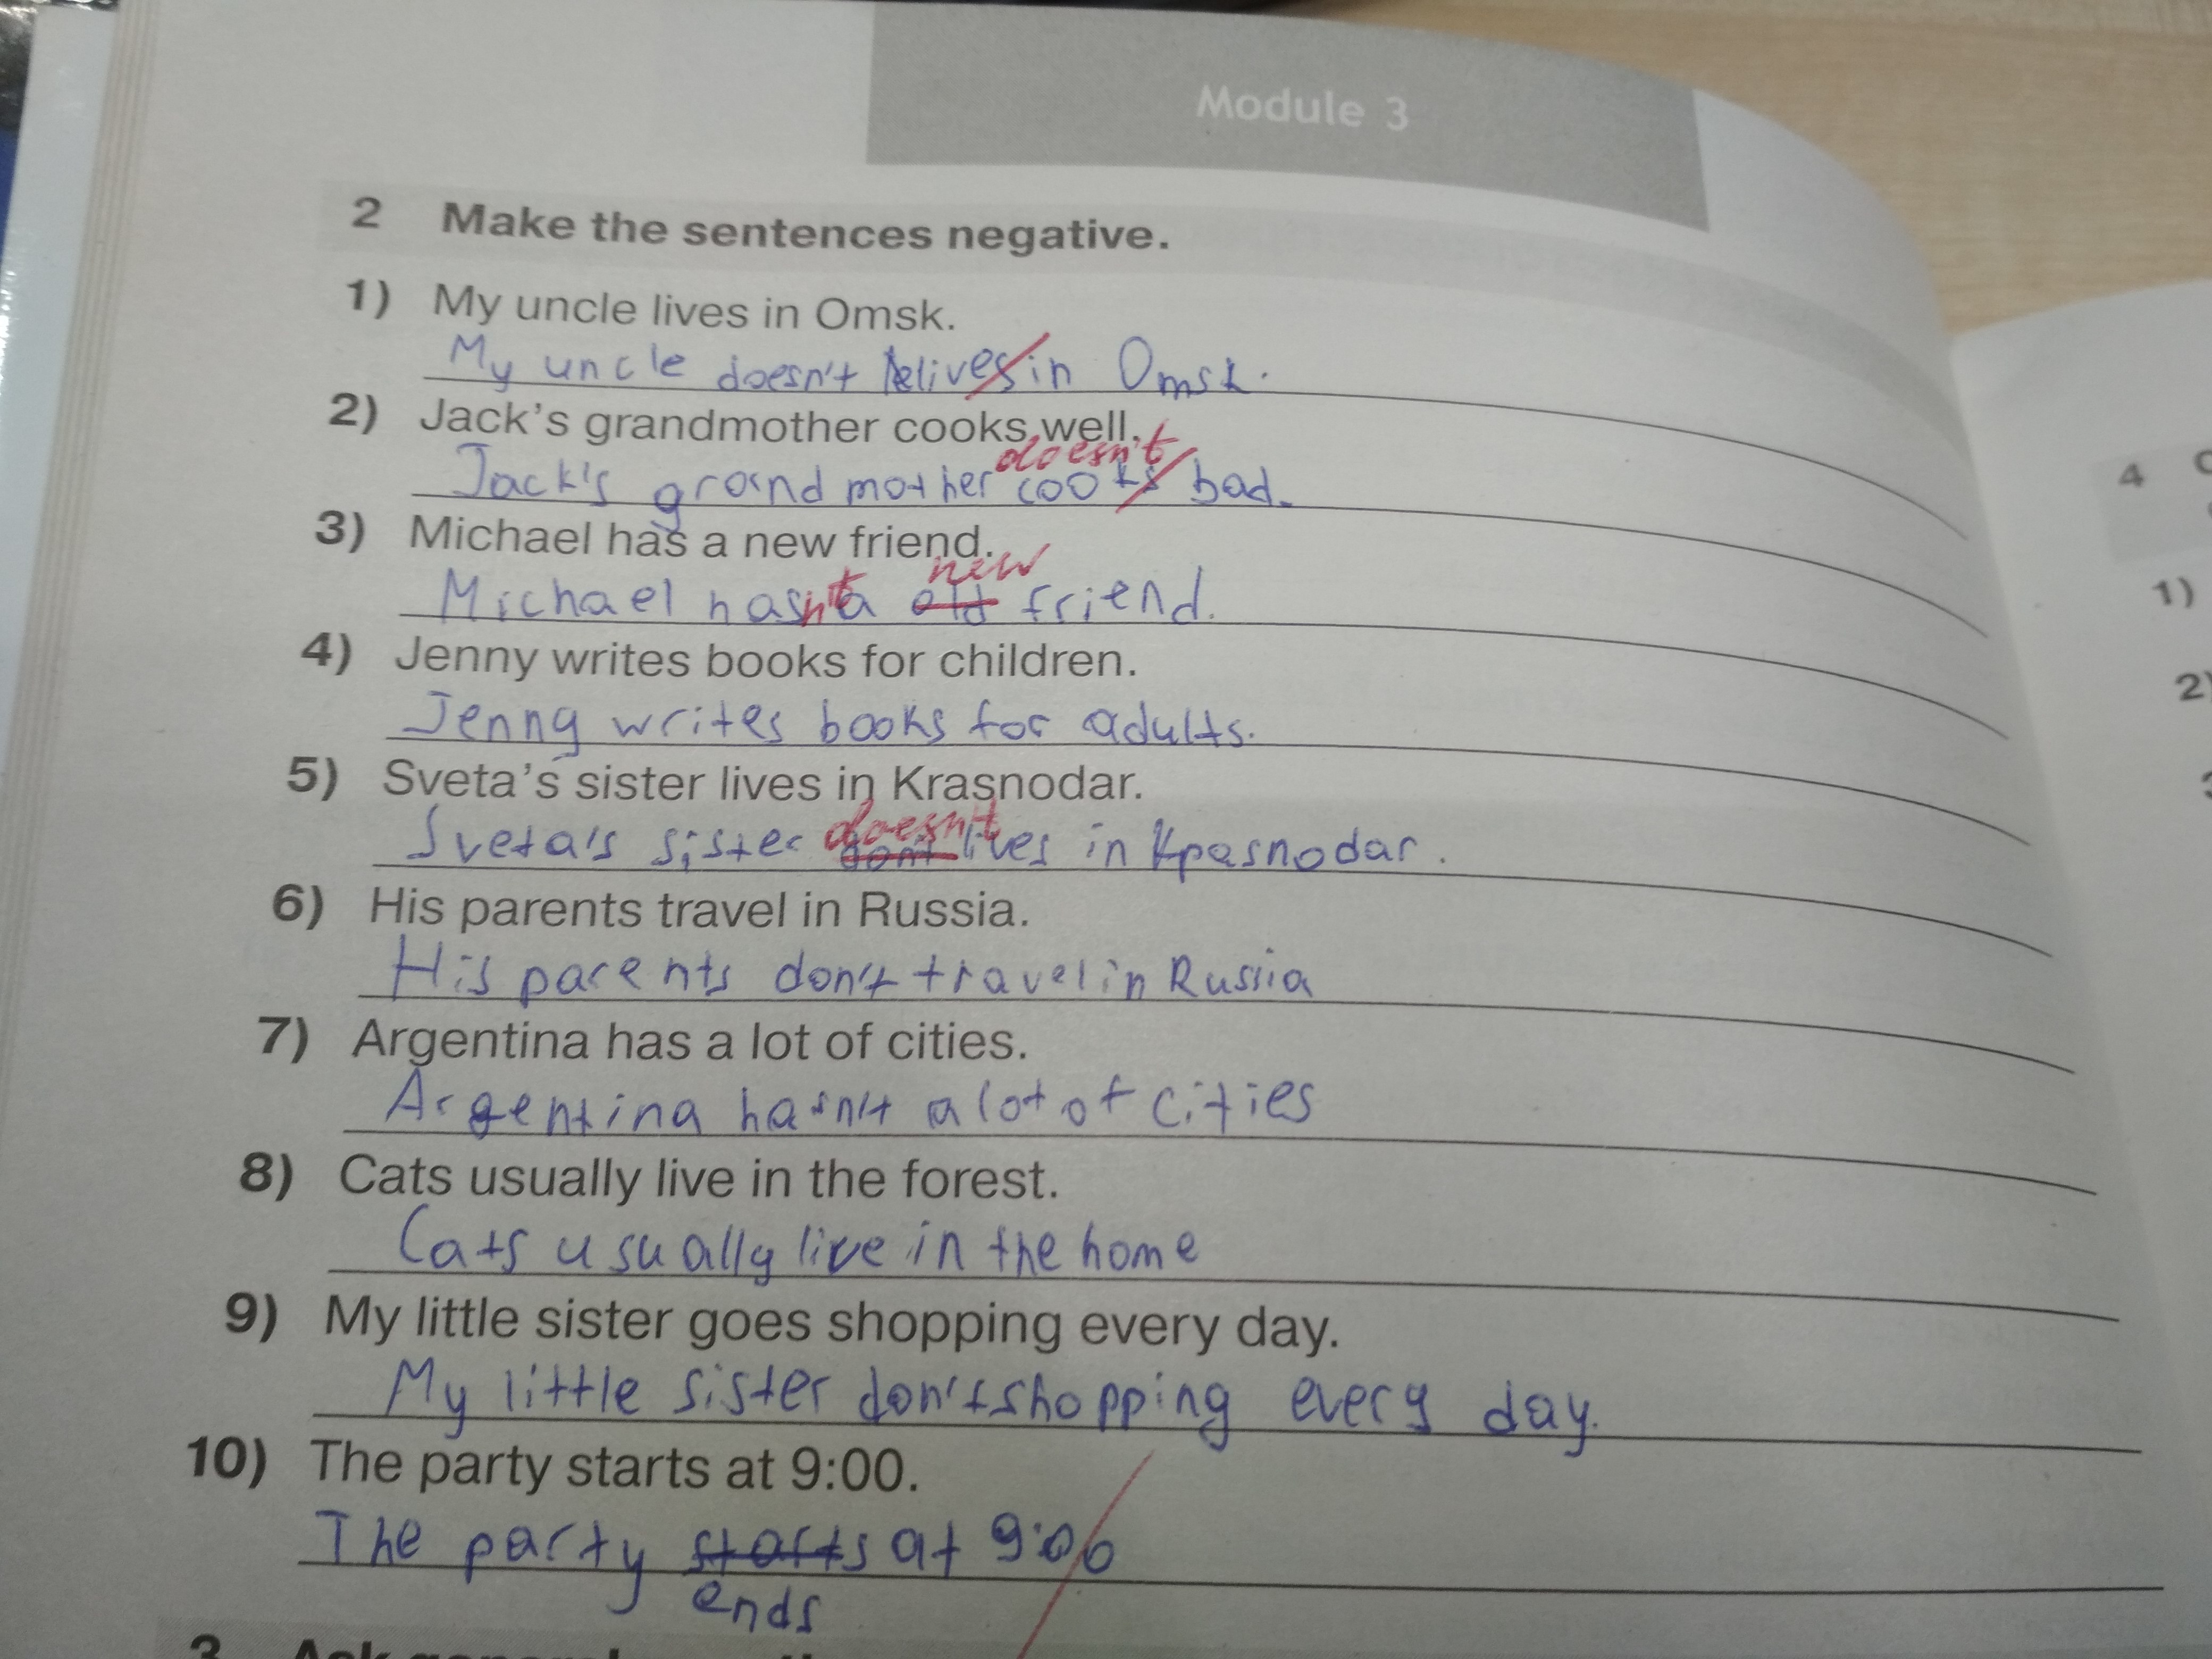 Module 3
2 Make the sentences negative.
1) My uncle lives in Omsk.
My uncle doesn't lives in Omsk.
2) Jack's grandmother cooks well.
doesn't
Jack's grandmother cooks bad.
3) Michael has a new friend.
new
Michael hasn't a old friend.
4) Jenny writes books for children.
Jenny writes books for adults.
5) Sveta's sister lives in Krasnodar.
doesn't
Sveta's sister don't lives in Kpasnodar.
6) His parents travel in Russia.
His parents don't travel in Russia
7) Argentina has a lot of cities.
Argentina hasn't a lot of cities
8) Cats usually live in the forest.
Cats usually live in the home
9) My little sister goes shopping every day.
My little sister don't shopping every day.
10) The party starts at 9:00.
The party starts at 9:00
ends
3
4
1)
2)